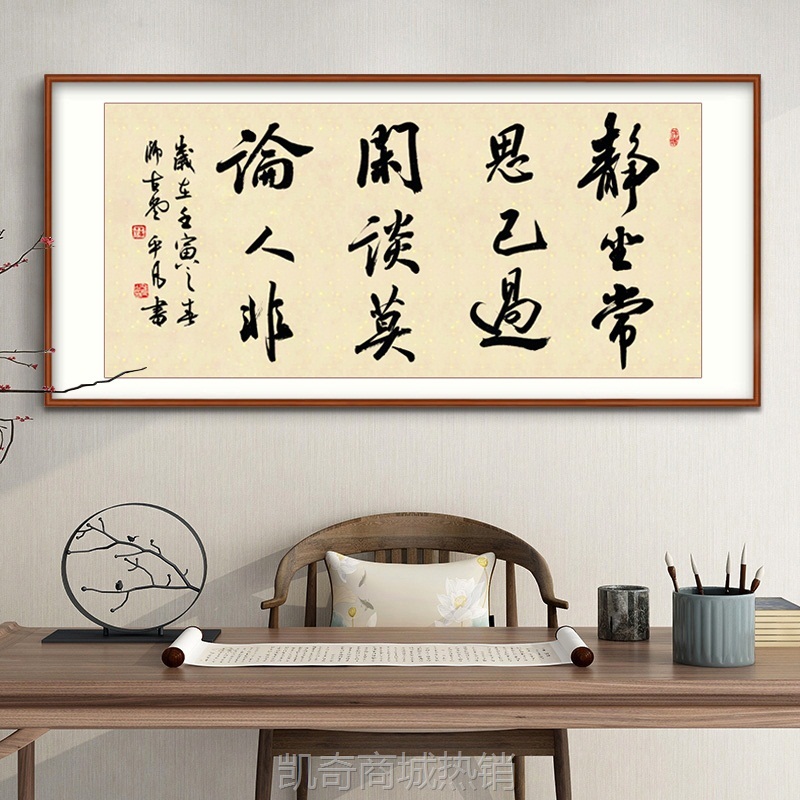 靜坐常
思己過
閑談莫
論人非
歲在壬寅之春
師古 平凡書
凯奇商城热销